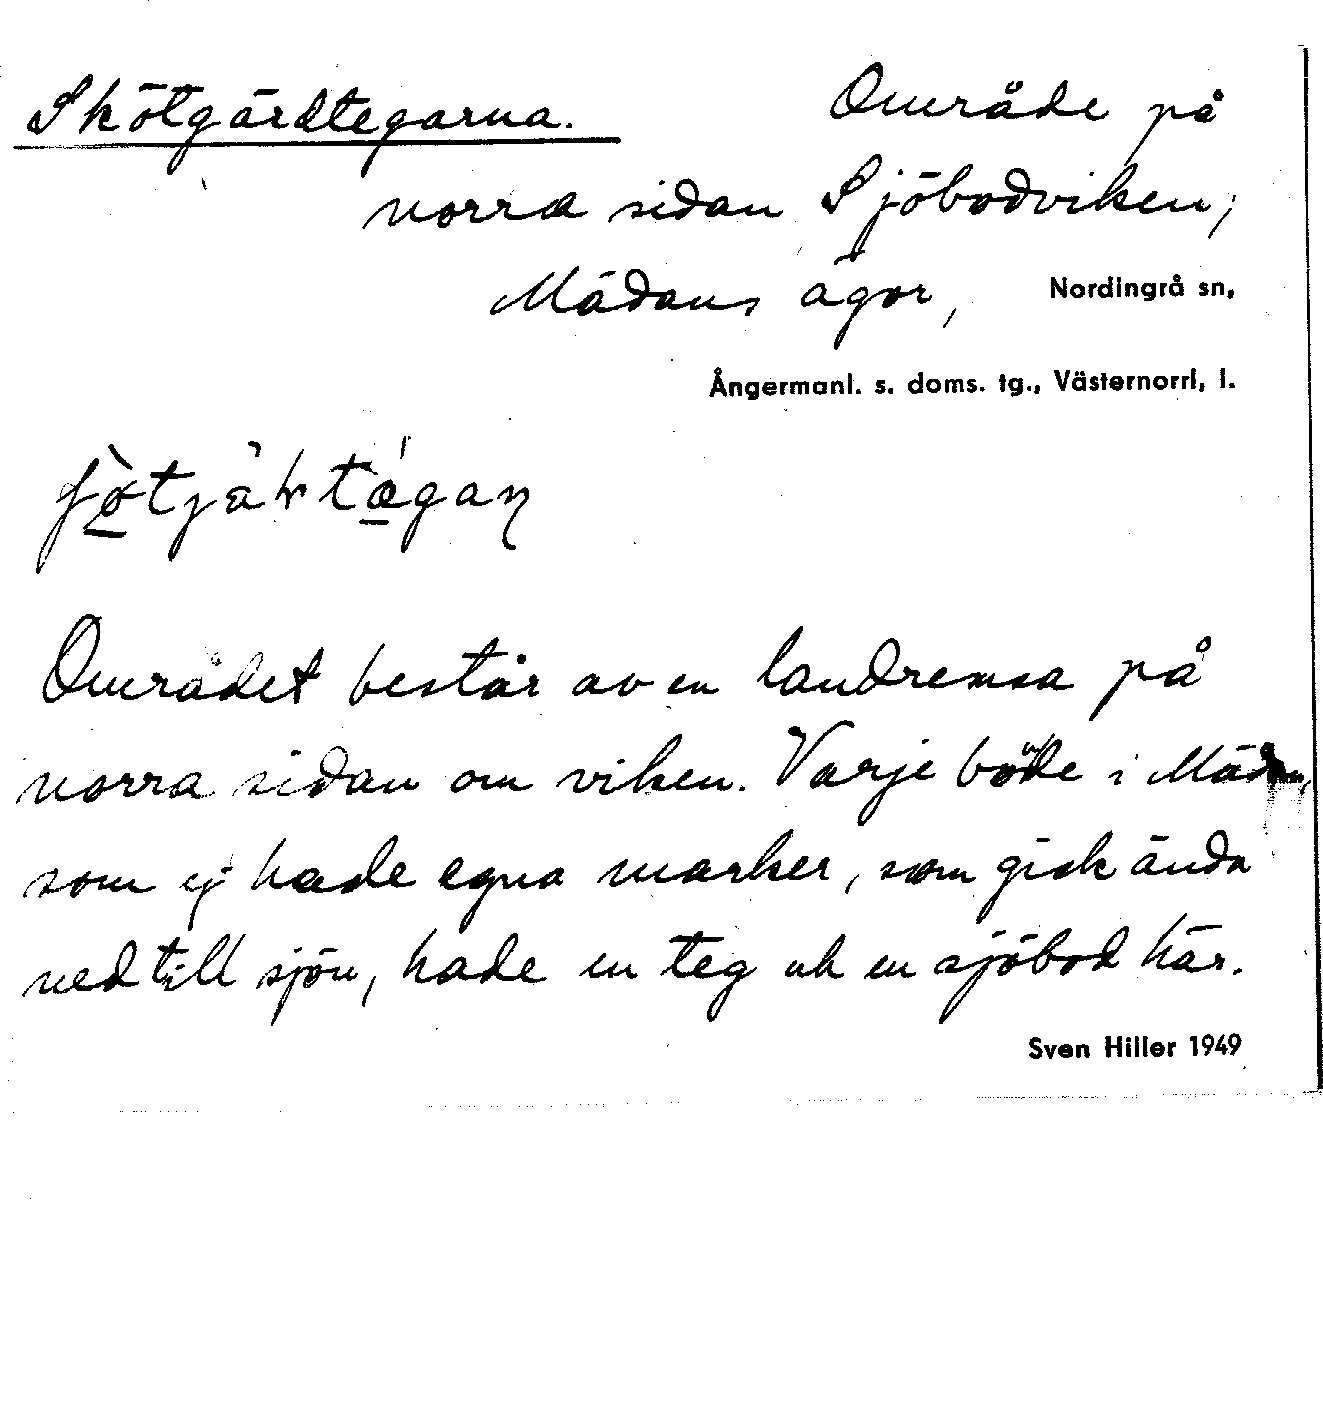 Skötgärdtegarna. Område på
norra sidan Sjöbodviken,
Mädans ägor, Nordingrå sn,
Ångermanl. s. doms. tg., Västernorrl, l.
Området består av en landremsa på
norra sidan om viken. Varje bonde i Mädan,
som ej hade egna marker, som gick ända
ned till sjön, hade en teg och en sjöbod här.
Sven Hiller 1949